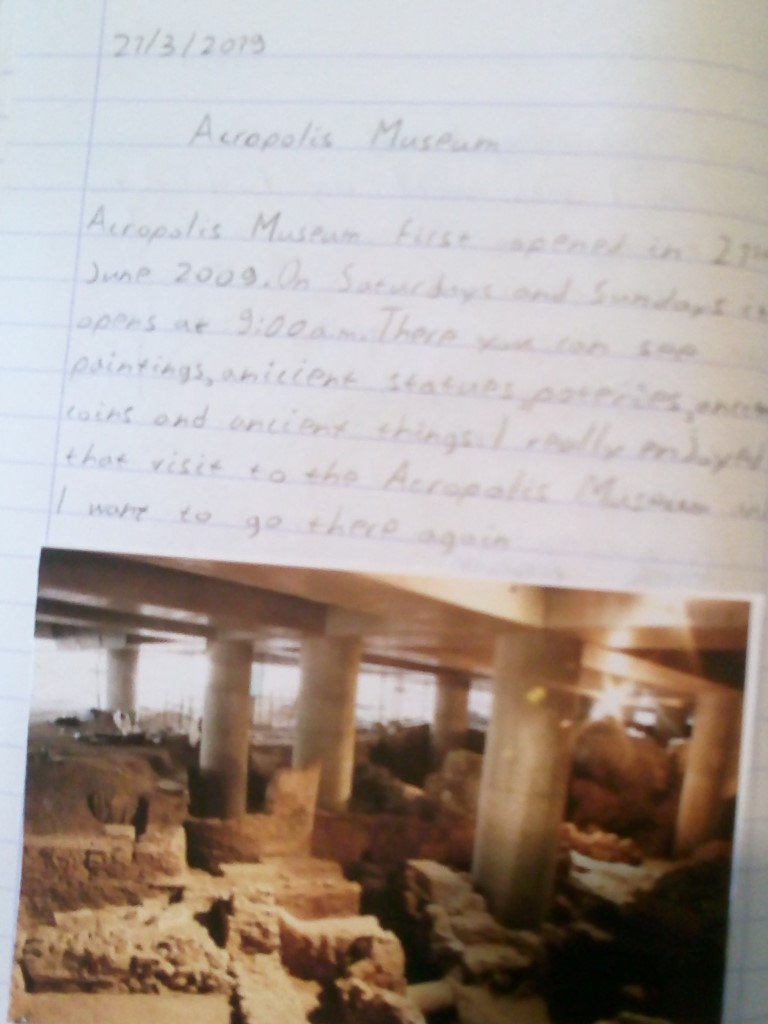 21/3/2019
Acropolis Museum
Acropolis Museum first opened in
June 2009. On Saturdays and Sundays it
opens at 9:00a.m. There you can see
paintings, anicient statues, poteries,
coins and ancient things. I really enojyed
that visit to the Acropolis Museum
I want to go there again